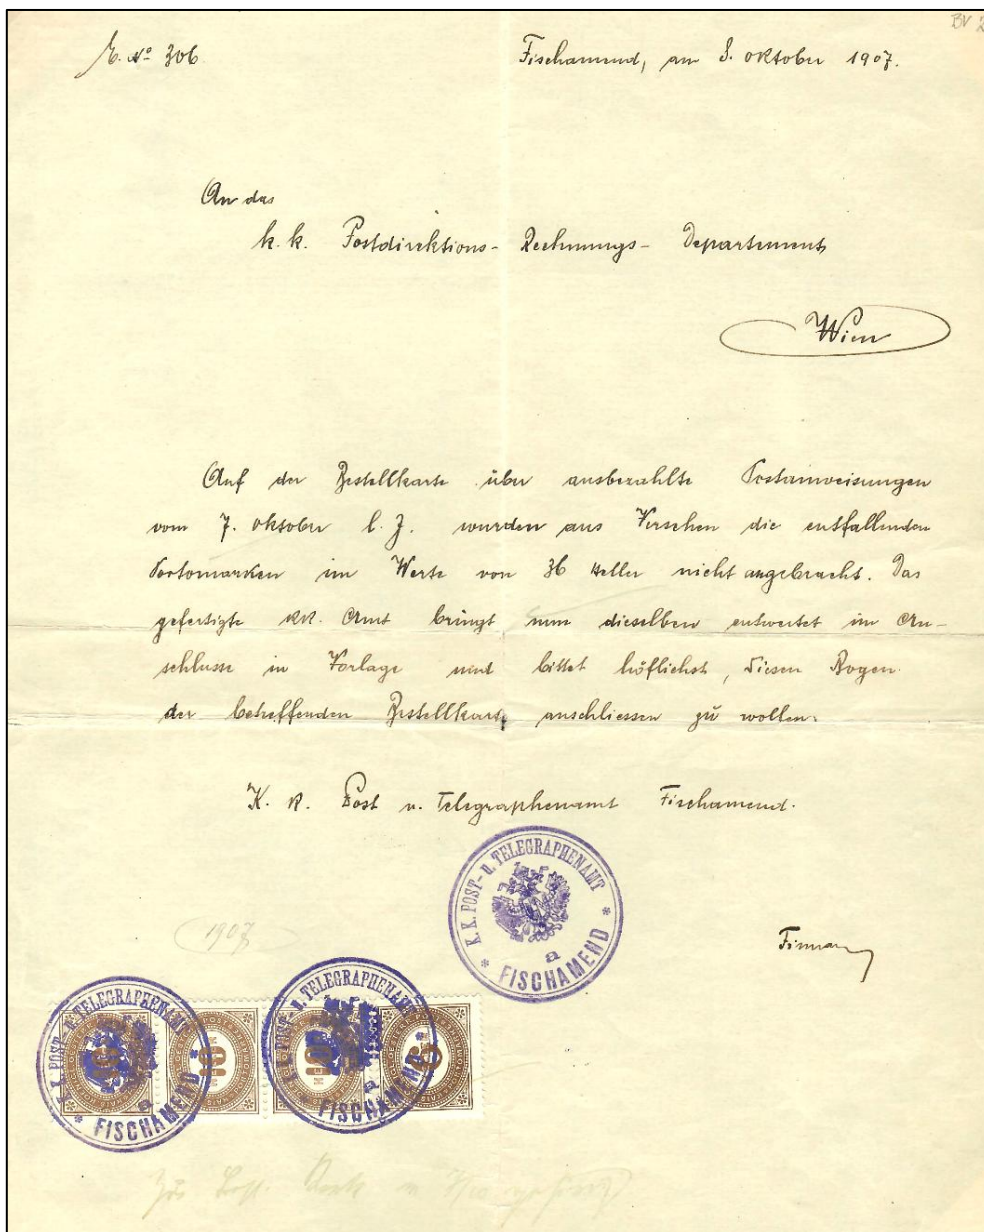 E. Nº 306
Fischamend, am 8. Oktober 1907.
BV 2
An das
k. k. Postdirektions-Rechnungs-Departement
Wien
Auf der Bestellkarte über ausbezahlte Postanweisungen
vom 7. Oktober l. J. wurden aus Versehen die entfallenden
Portomarken im Werte von 36 Heller nicht angebracht. Das
gefertigte kk. Amt bringt nun dieselben entwertet im An-
schlusse in Vorlage und bittet höflichst, diesen Bogen
der betreffenden Bestellkarte anschliessen zu wollen.
K. k. Post u. Telegraphenamt Fischamend.
K. K. POST- U. TELEGRAPHENAMT
a
* FISCHAMEND *
1907
K. K. POST- U. TELEGRAPHENAMT
a
* FISCHAMEND *
K. K. POST- U. TELEGRAPHENAMT
a
* FISCHAMEND *
10
10
10
6